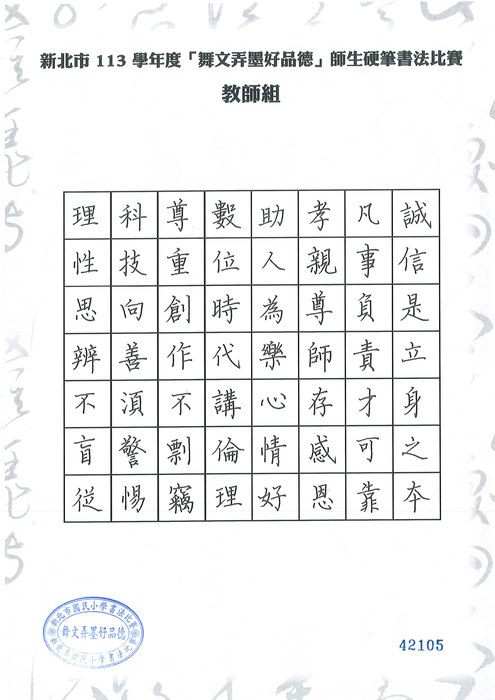 新北市 113 學年度「舞文弄墨好品德」師生硬筆書法比賽
教師組
誠信是立身之本
凡事負責才可靠
孝親尊師存感恩
助人為樂心情好
數位時代講倫理
尊重創作不剽竊
科技向善須警惕
理性思辨不盲從
新北市國民小學書法比賽
舞文弄墨好品德
42105